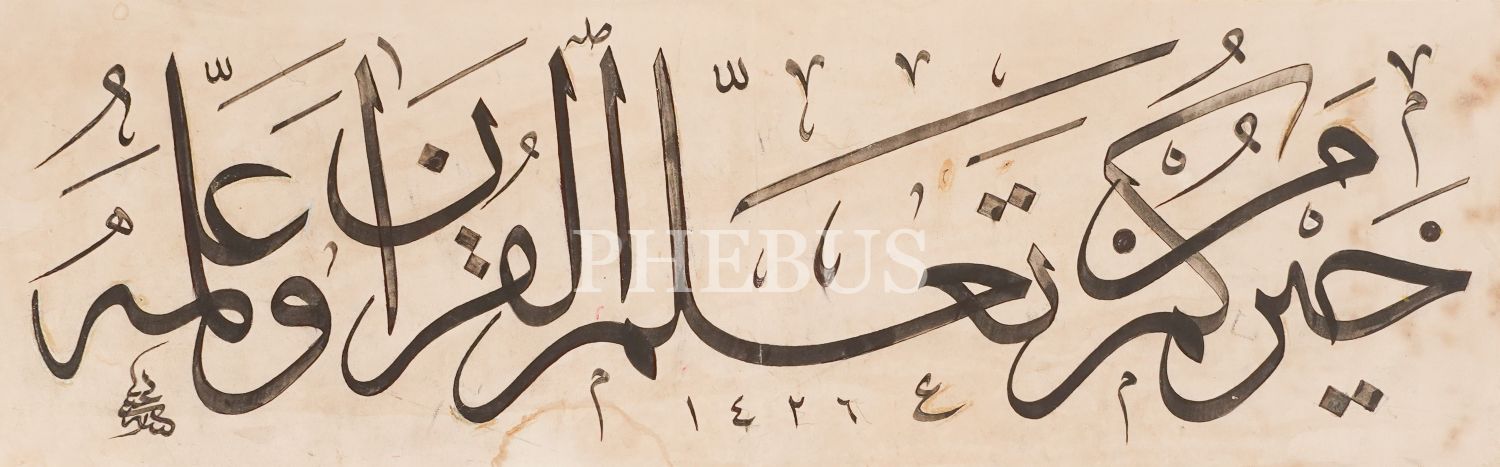 خَيْرُكُمْ مَنْ تَعَلَّمَ الْقُرْآنَ وَعَلَّمَهُ
١٤٢٦
PHEBUS